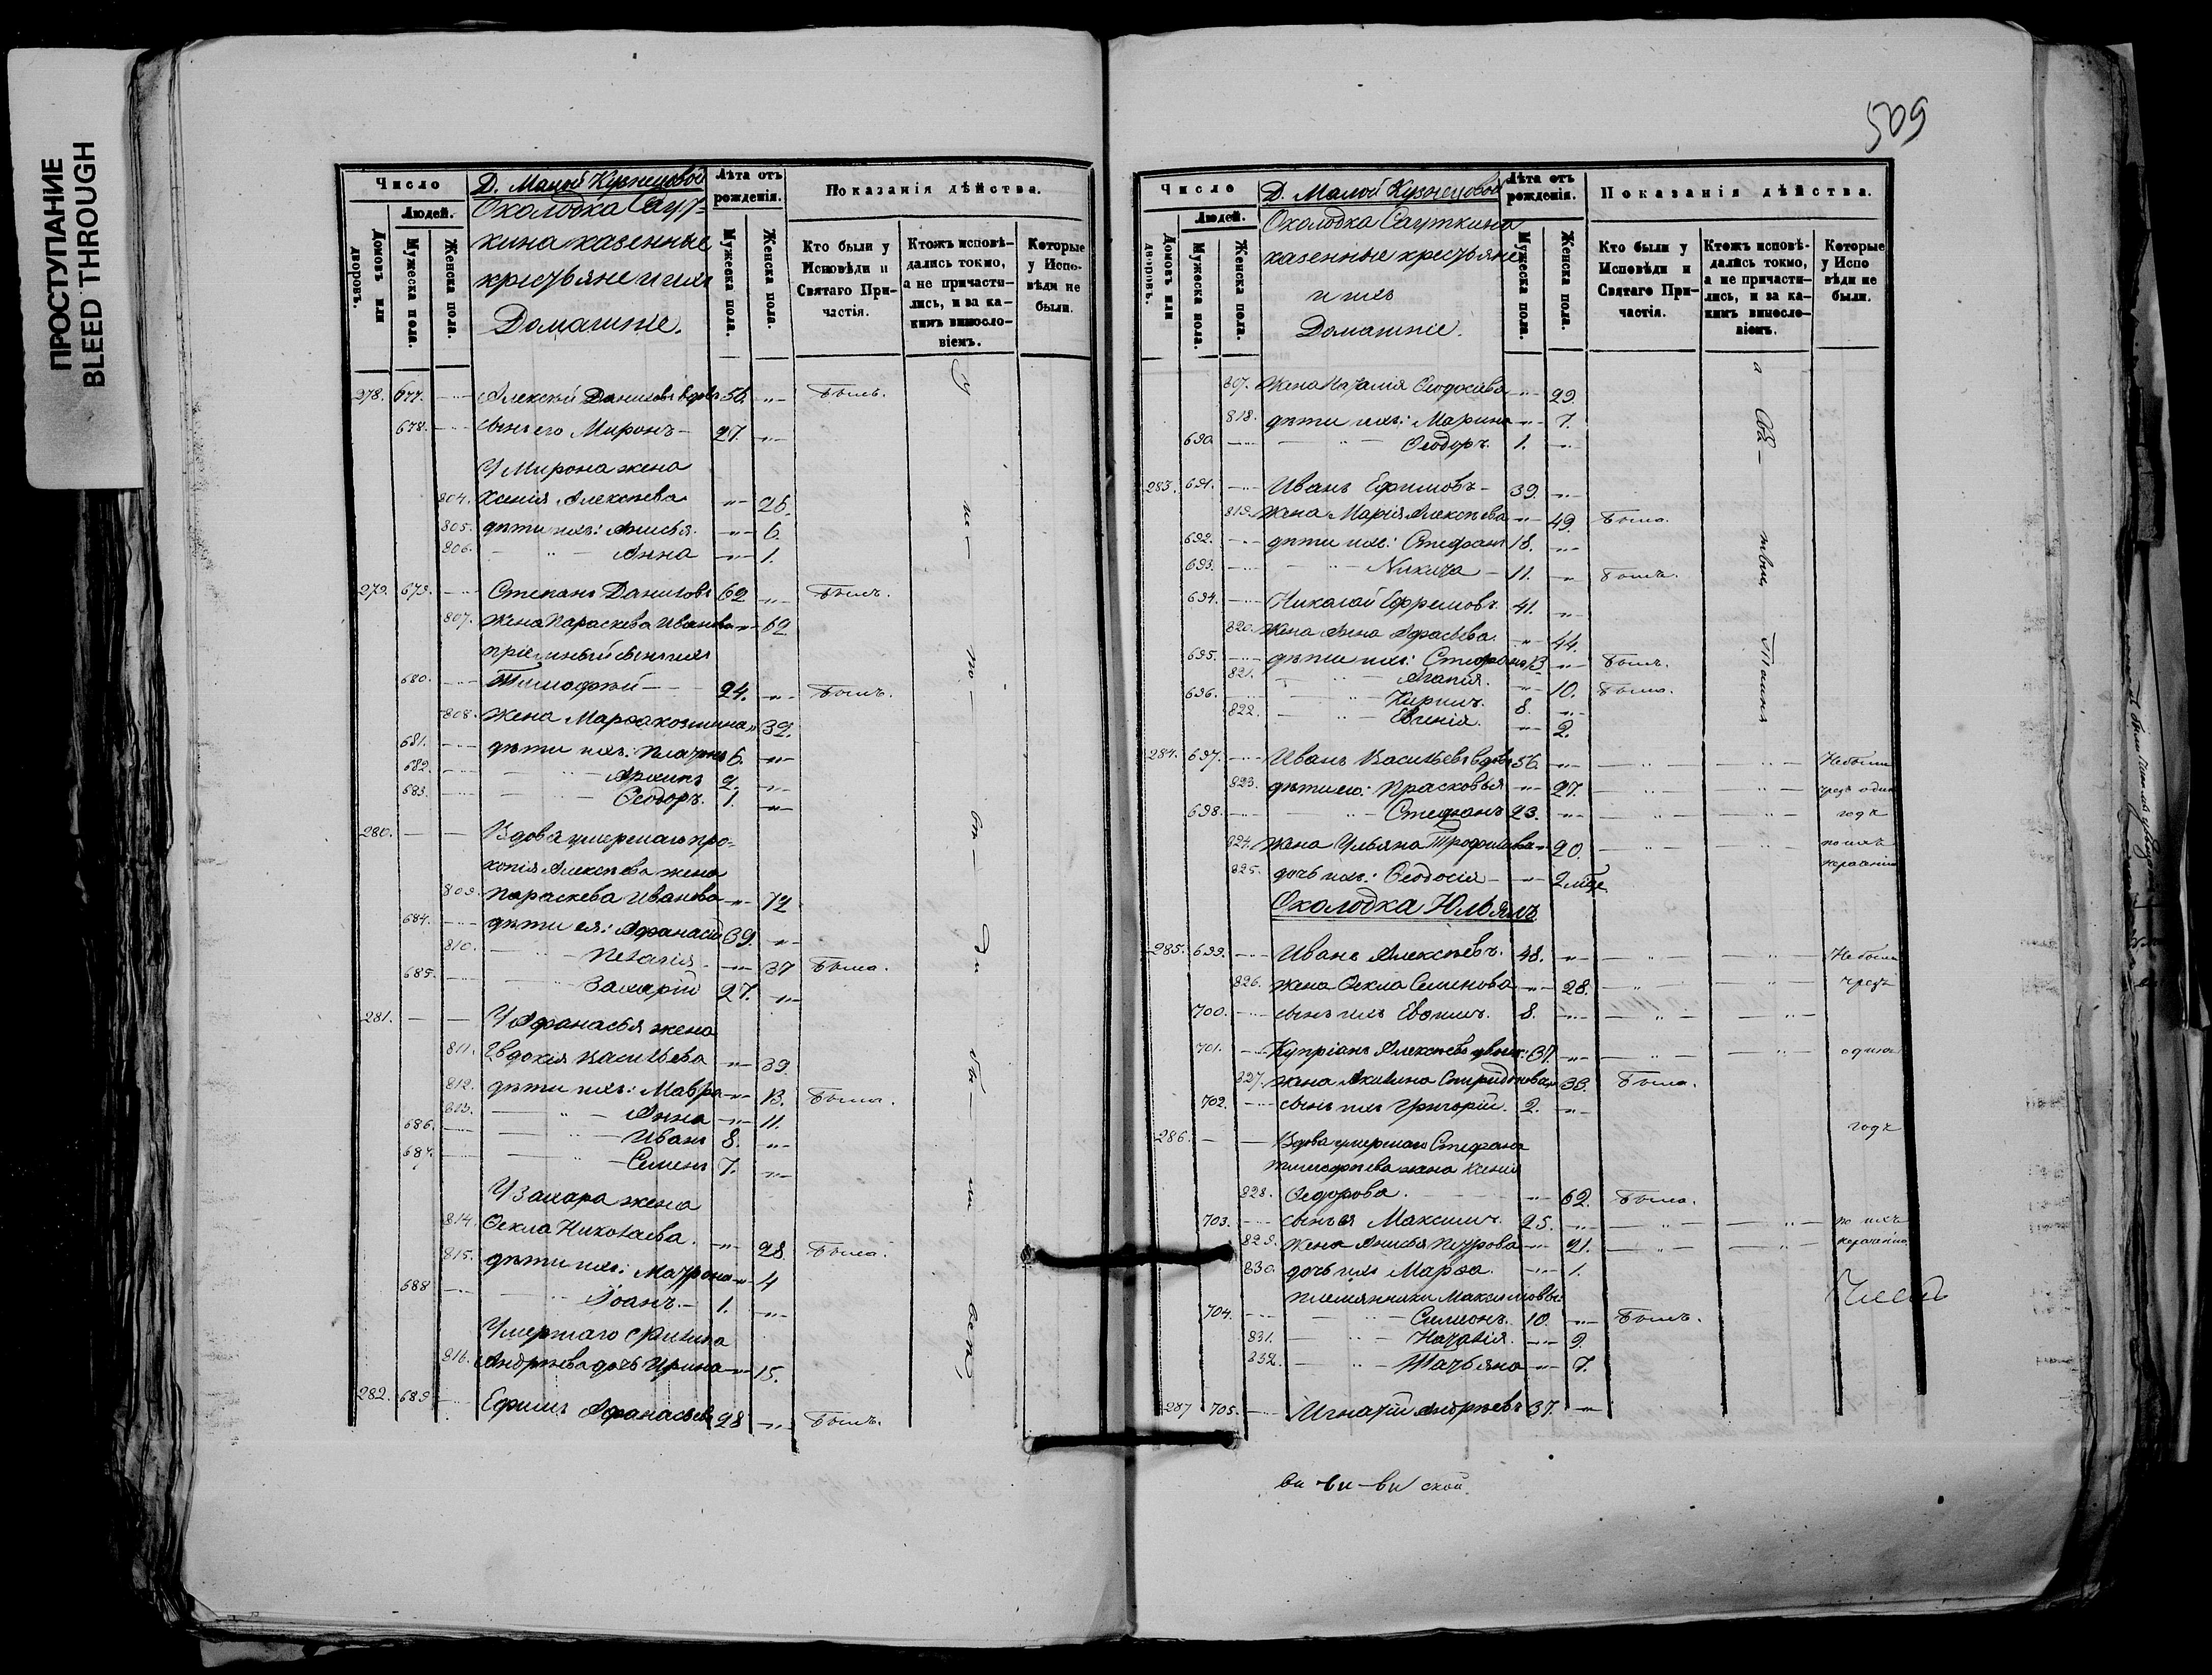 ПРОСТУПАНИЕ
BLEED THROUGH
Число
Людей.
Домовъ или дворовъ.
Мужеска пола.
Женска пола.
Д. Малой Кузнецовой
Околодка Саут-
кина казенные
крестьяне и ихъ
Домашніе.
Лѣта отъ рожденія.
Мужеска пола.
Женска пола.
Показанія дѣйства.
Кто были у Исповѣди и Святаго Причастія.
Ктожъ исповѣдались токмо, а не причастились, и за какимъ винословіемъ.
Которые у Исповѣди не были.
278. 677. Алексѣй Даниловъ вдовъ 56. Былъ.
678. сынъ его Миронъ 27.
У Мирона жена
804. Ксенія Алексѣева 26.
805. дѣти ихъ: Анисья 6.
806. Анна 1.
279. 679. Степанъ Даниловъ 62 Былъ.
807. жена Параскева Иванова 62
пріемный сынъ ихъ
680. Тимофей 24. Былъ.
808. жена Марфа Козмина 32.
681. дѣти ихъ: Платонъ 6.
682. Архипъ 2.
683. Ѳеодоръ. 1.
280. Вдова умершаго Про-
копія Алексѣева жена
809. Параскева Иванова 72
684. дѣти ея: Афанасій 39.
810. Пелагія 37 Была.
685. Захарій 27.
281. У Афанасья жена
811. Евдокія Васильева 39.
812. дѣти ихъ: Мавра 13. Была.
813. Анна 11.
686. Иванъ 8.
687. Семенъ 7.
У Захара жена
814. Ѳекла Николаева. 28. Была.
815. дѣти ихъ: Матрона 4
688 Іоанъ. 1.
Умершаго Филипа
816. Андреева дочь Ирина 15.
282. 689 Ефимъ Афанасьевъ 28 Былъ.
509
Число
Людей.
Домовъ или дворовъ.
Мужеска пола.
Женска пола.
Д. Малой Кузнецовой
Околодка Сауткина
казенные крестьяне
и ихъ
Домашніе.
Лѣта отъ рожденія.
Мужеска пола.
Женска пола.
Показанія дѣйства.
Кто были у Исповѣди и Святаго Причастія.
Ктожъ исповѣдались токмо, а не причастились, и за какимъ винословіемъ.
Которые у Исповѣди не были.
817. жена Наталія Ѳеодосѣева 29.
818. дѣти ихъ: Марина 7.
690. Ѳеодоръ. 1.
283. 691. Иванъ Ефимовъ 39.
819. жена Марія Алексѣева 49. Была.
692. дѣти ихъ: Стефанъ 18.
693. Никита 11. Былъ.
694. Николай Ефремовъ. 41.
820. жена Анна 44.
695. дѣти ихъ: Стефанъ 13 Былъ.
821. Агапія. 10. Была.
696. Кирилъ. 8.
822. Евгенія. 2.
284. 697. Иванъ Васильевъ вдовъ 56. Небыли
823. дѣти его: Прасковья 27. чрезъ одинъ
698. Стефанъ 23. годъ
824. жена Ульяна Трофимова 20. по ихъ
825. дочь ихъ: Ѳеодосія 2 мѣс. нераденію
Околодка Юльялъ
285. 699. Иванъ Алексѣевъ. 48. Небыли
826. жена Ѳекла Семенова 28. чрезъ
700. сынъ ихъ Евфимъ. 8.
701. Купріанъ Алексѣевъ 37. одинъ
827. жена Акилина Спиридонова 33. Была.
702. сынъ ихъ Григорій. 2.
годъ
286. Вдова умершаго Стефана
Тимофѣева жена Ксенія
828. Ѳедорова. 62. Была.
703. сынъ ея Максимъ. 25. по ихъ
829. жена Анисья Петрова 21. нераденію
830. дочь ихъ Марфа. 1.
племянники Максимовы
704. Симеонъ. 10. Былъ.
831. Наталія. 9.
832. Татьяна 7.
287 705. Игнатій Андреевъ 37.
ви - ви - ви ской.